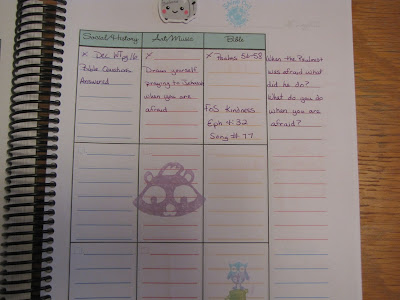 Social/History
x Dec WT pg 16
Bible Questions
Answered
Art/Music
x
Draw yourself
praying to Jehovah
when you are
afraid
Bible
x Psalms 56-58
FoS Kindness
Eph 4:32
Song # 77
When the Psalmist
was afraid what
did he do?
What do you do
when you are
afraid?